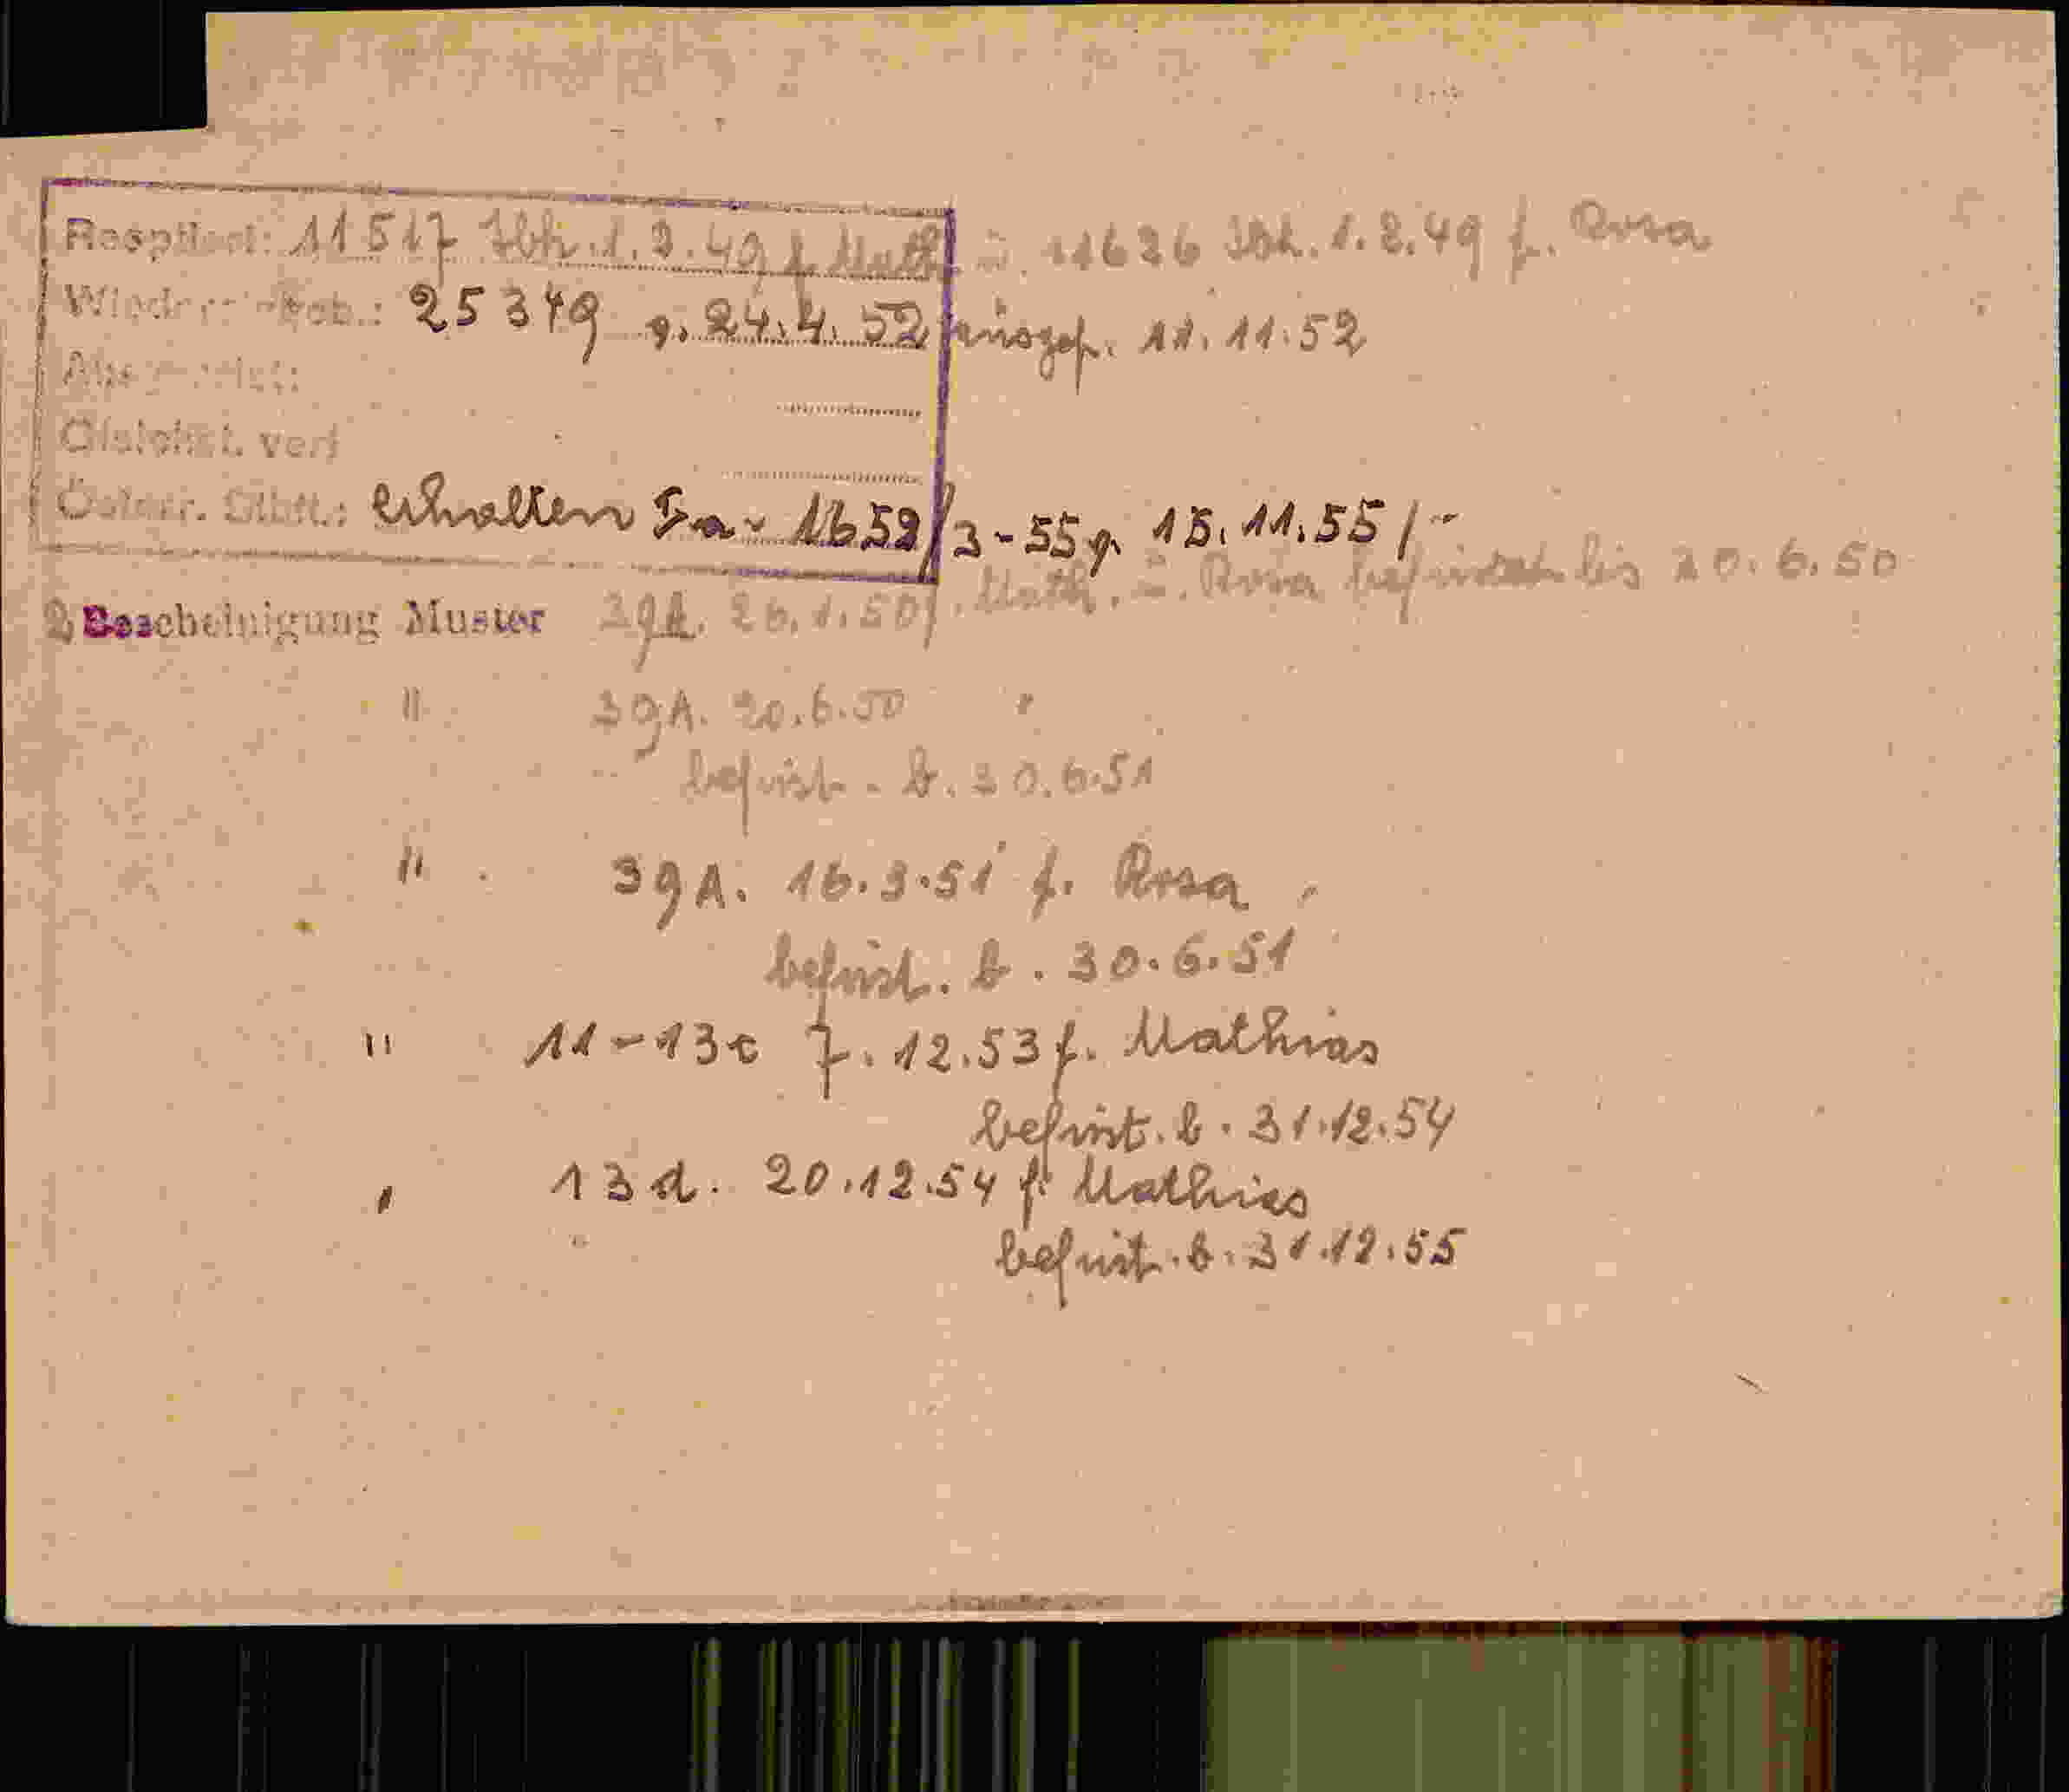 11517 Jbk. 1.2.49 f. Math. ü. 11626 Jbk. 1.2.49 f. Rosa
25349 v. 24.4.52 ausgef. 11.11.52
Gleichst. verl
Österr. Stbft.: erhalten Ia- 1652/3-55 v. 15.11.55/-
2) Bescheinigung Muster 39A. 26.1.50 f. Math. ü. Rosa befristet bis 20.6.50
" 39A. 20.6.50 "
befrist. b. 30.6.51
" 39A. 16.3.51 f. Rosa
befrist. b. 30.6.51
" 11-13c 7.12.53 f. Mathias
befrist. b. 31.12.54
" 13d. 20.12.54 f. Mathias
befrist. b. 31.12.55